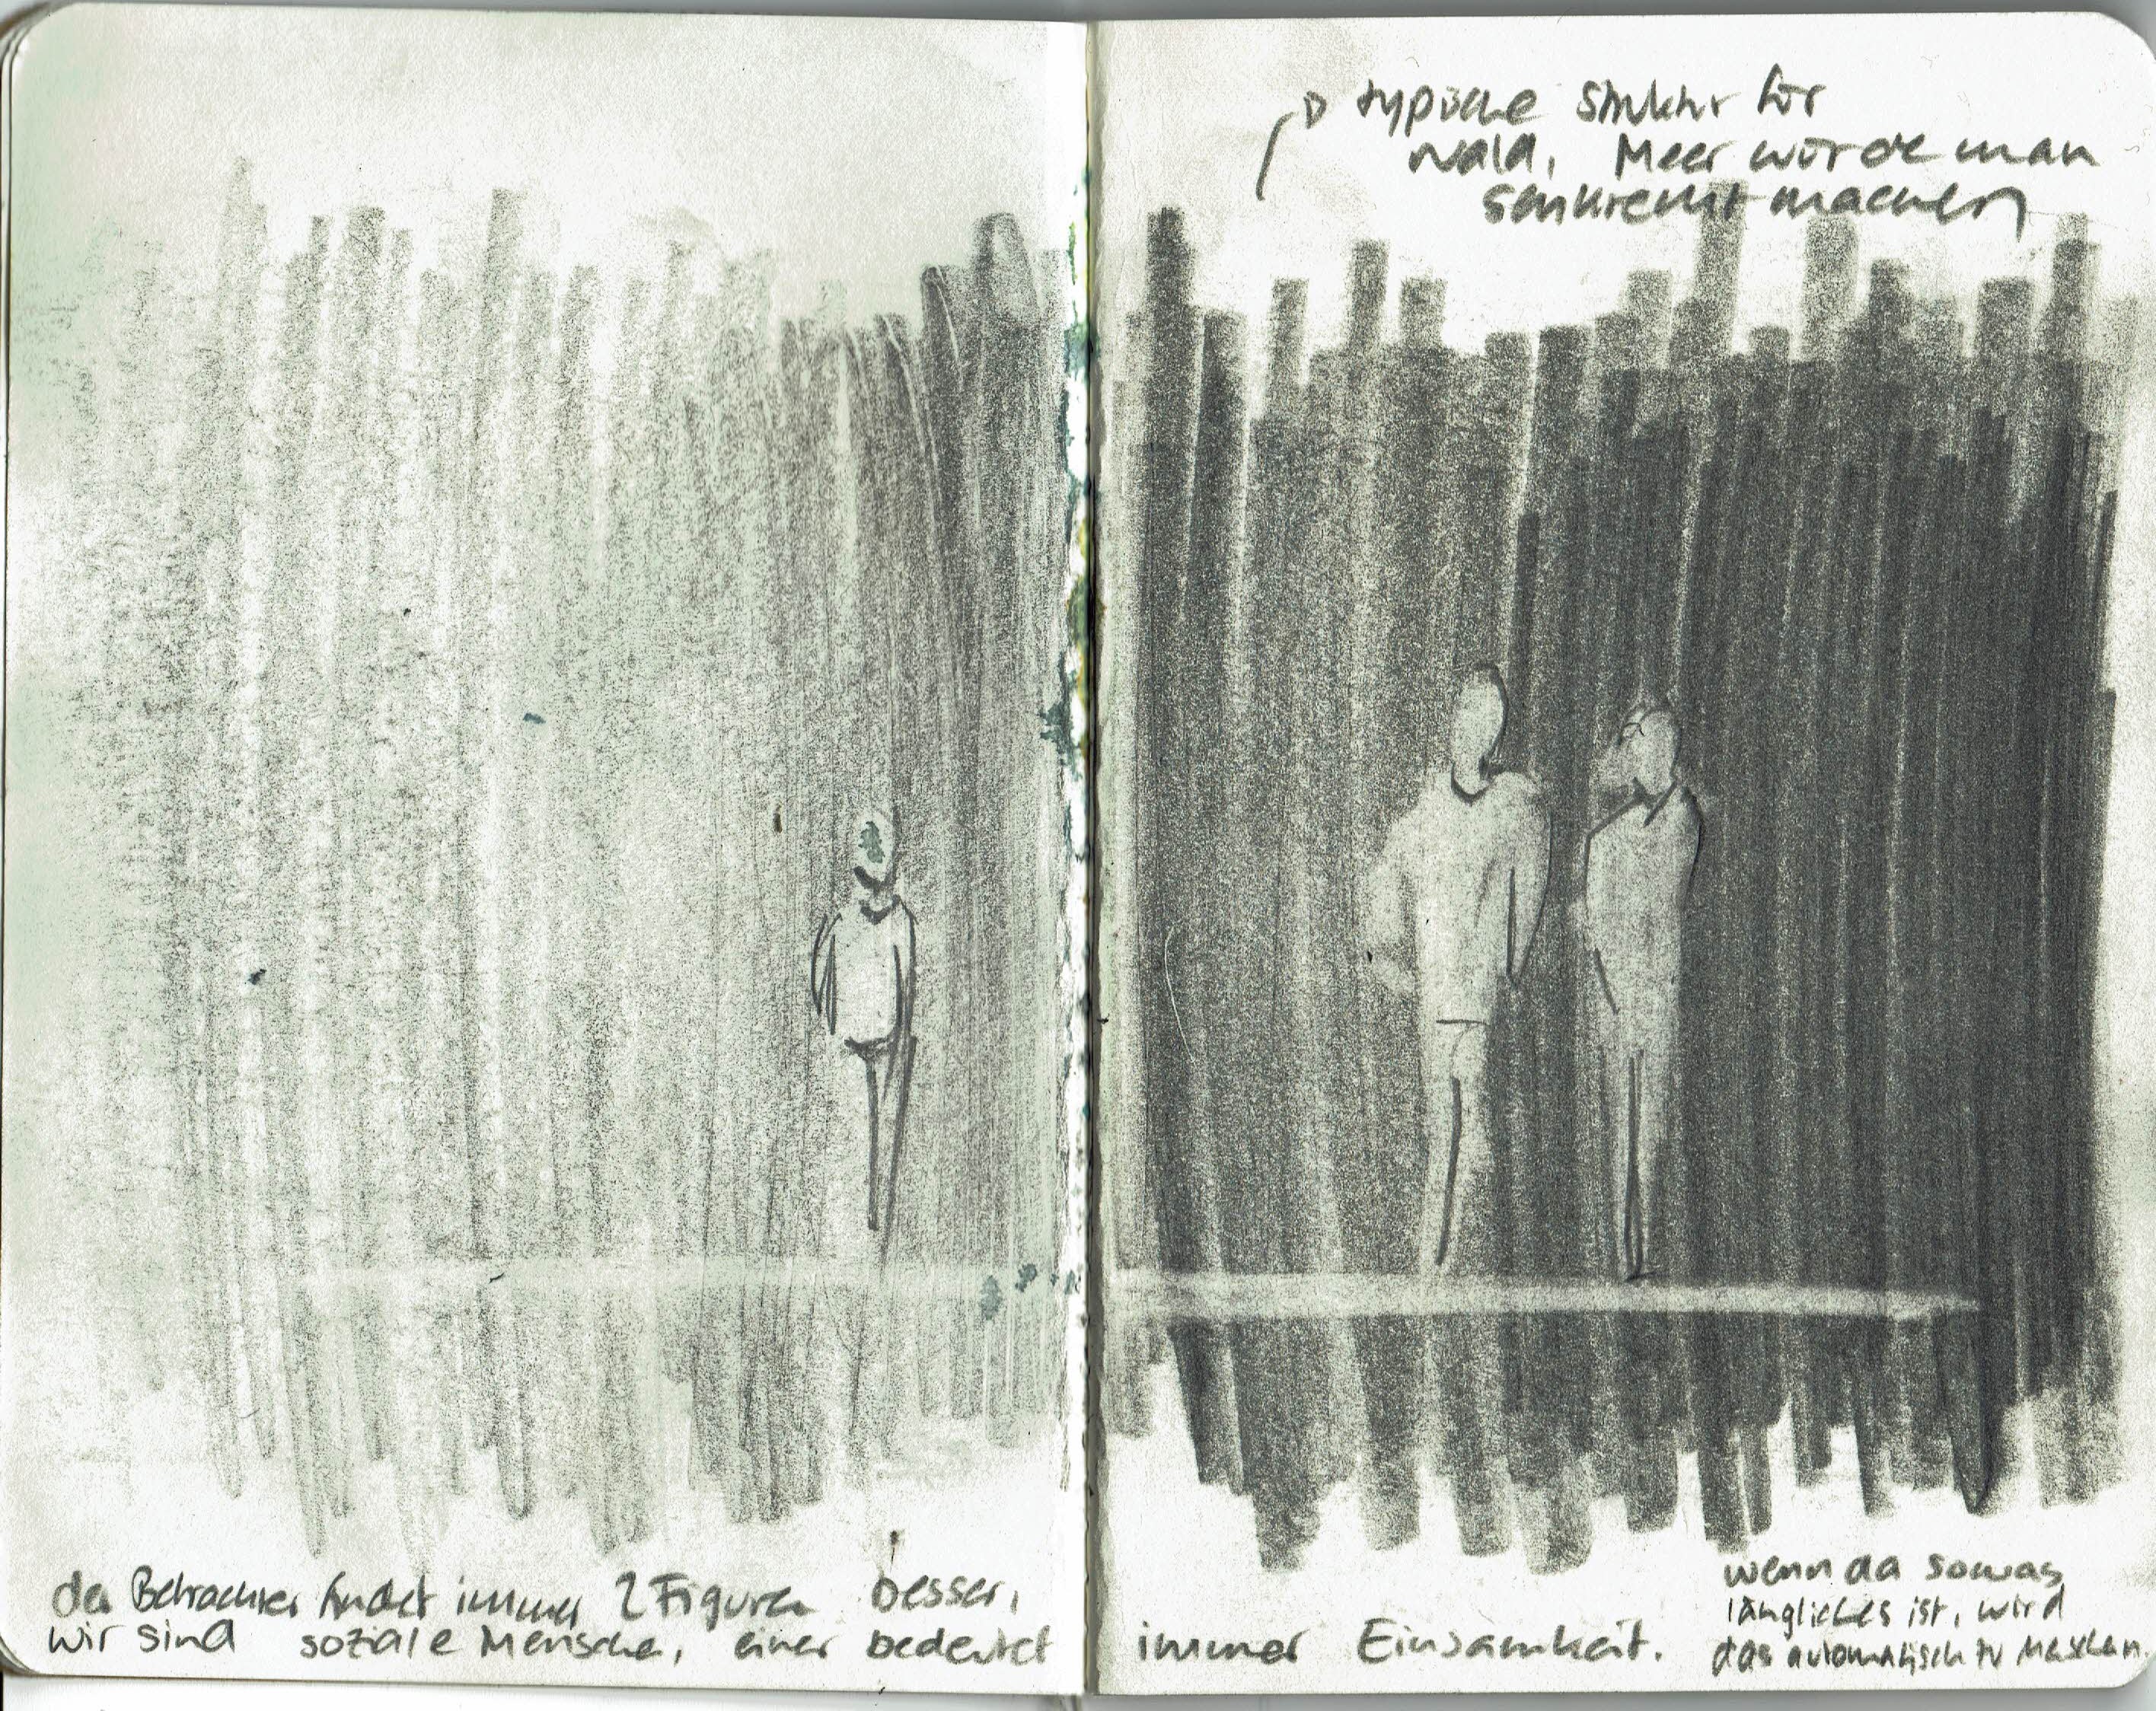 typische Struktur für
Wald. Meer würde man
senkrecht machen
der Betrachter findet immer 2 Figuren besser,
wir sind soziale Mensche, einer bedeutet
immer Einsamkeit.
wenn da sowas
längliches ist, wird
das automatisch zu Menschen